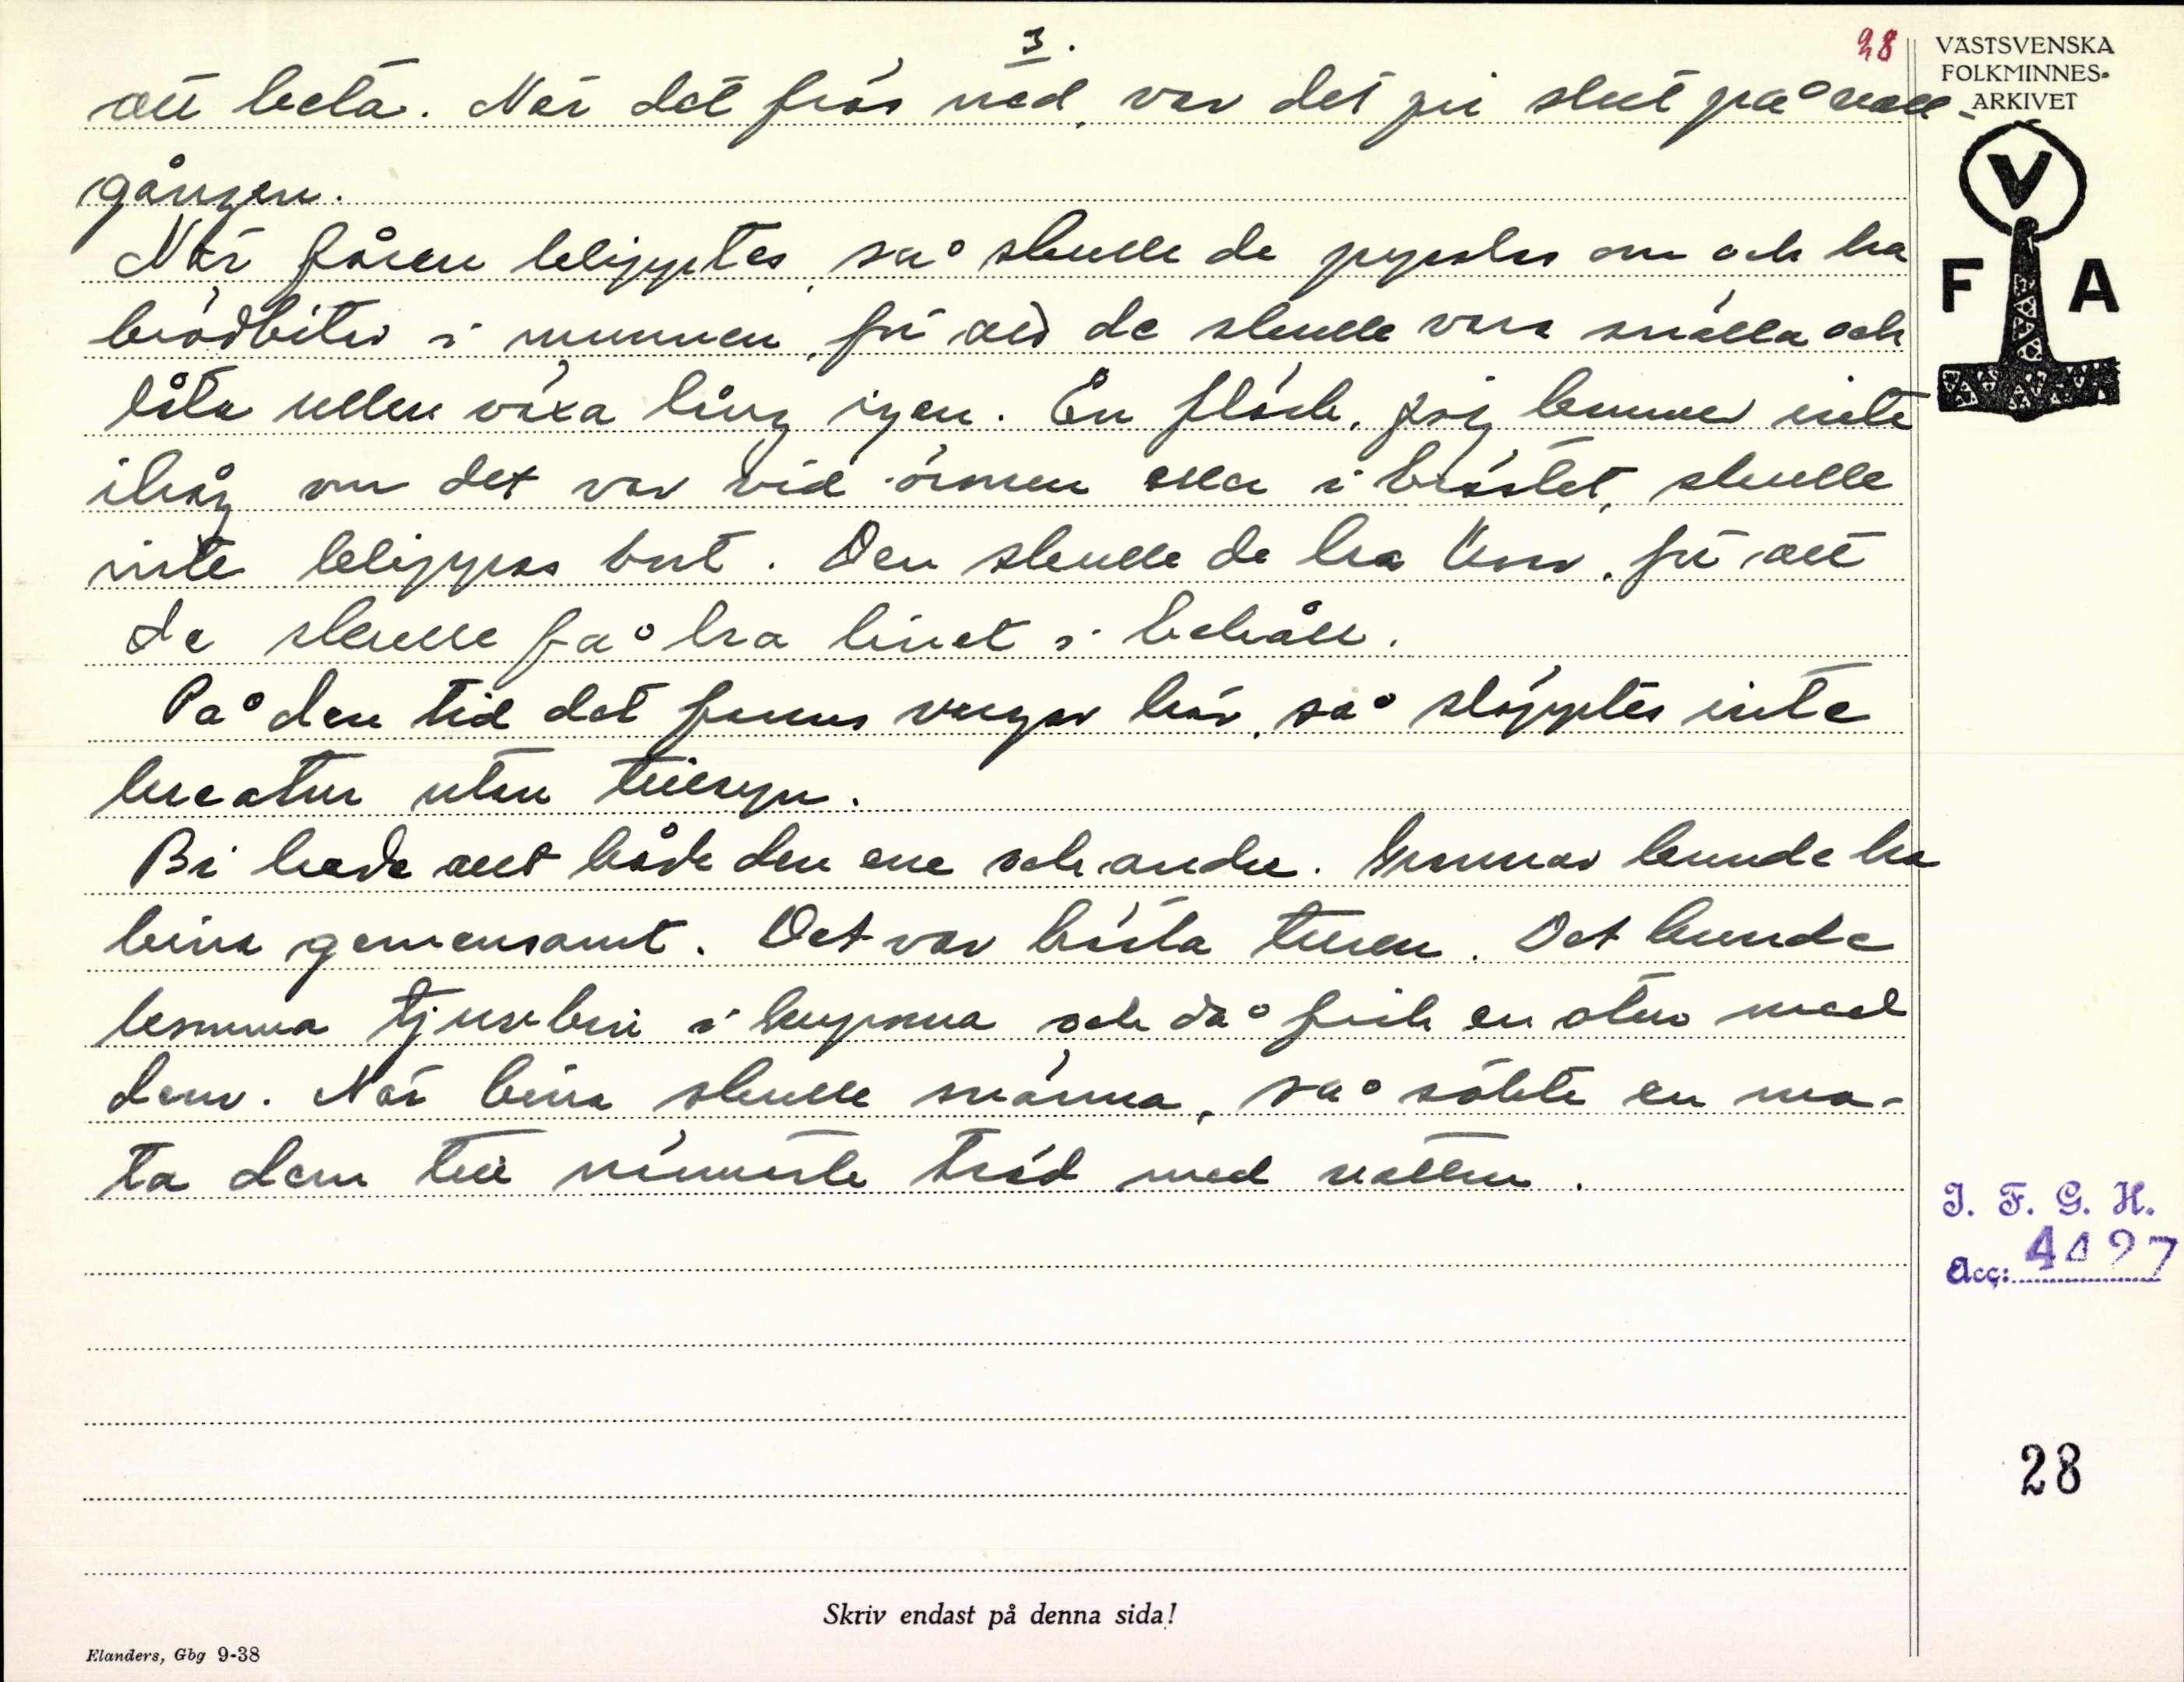 3.
28
VÄSTSVENSKA
FOLKMINNES-
ARKIVET
att beta. När det frös ned, var det för slut på vall-
gången.
När fåren klipptes, så skulle de pysslas om och ha
brödbitar i munnen, för att de skulle vara snälla och
låta ullen växa lång igen. En fläck, jag kommer inte
ihåg om det var vid öronen eller i bröstet, skulle
inte klippas bort. Den skulle de ha kvar, för att
de skulle få ha livet i behåll.
På den tid det fanns vargar här, så släpptes inte
kreatur utan tillsyn.
Bi hade allt både den ene och andre. Grannar kunde ha
bina gemensamt. Det var bästa turen. Det kunde
komma tjuvbin i kuporna och då fick en otur med
dem. När bina skulle svärma, så sökte en mo-
ta dem till närmaste träd med vatten.
V
F A
I. F. G. H.
Acc: 4497
28
Skriv endast på denna sida!
Elanders, Gbg 9-38